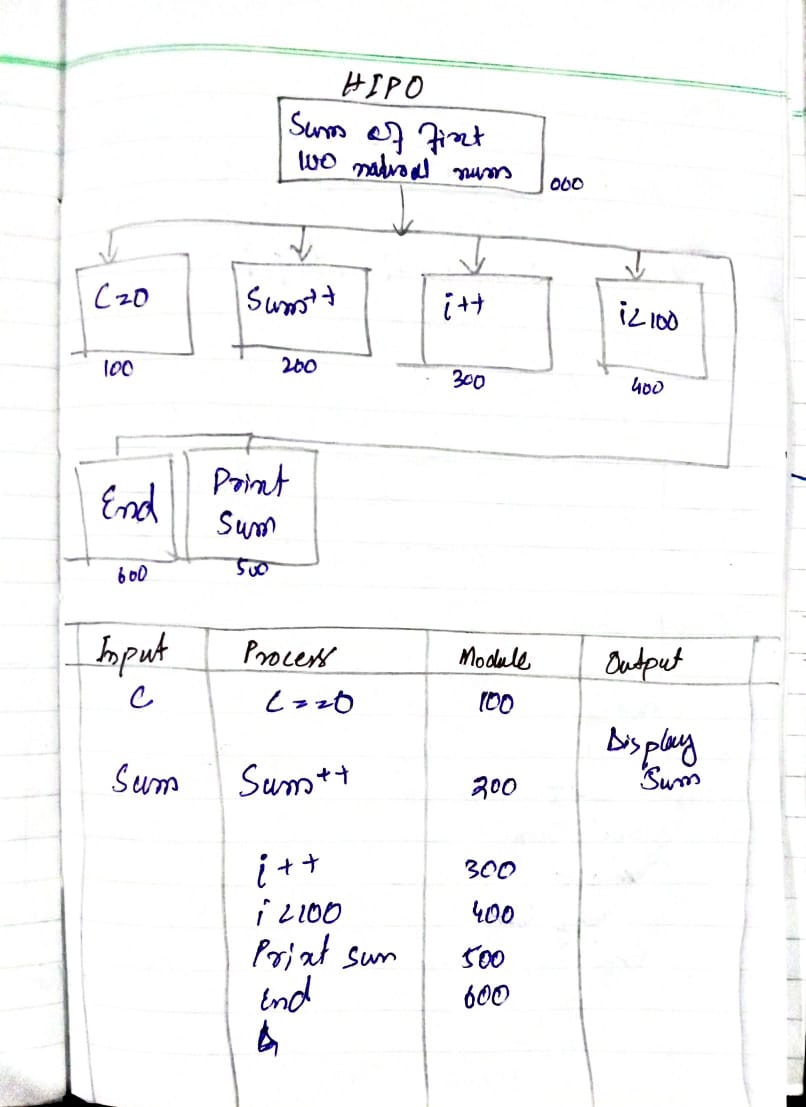 HIPO
Sum of First
100 natural nums
000
C=0
Sum++
i++
i<100
100
200
300
400
End
Print
Sum
600
500
Input Process Module Output
C C==0 100
Display
Sum Sum++ 200 Sum
i++ 300
i<100 400
Print sum 500
End 600